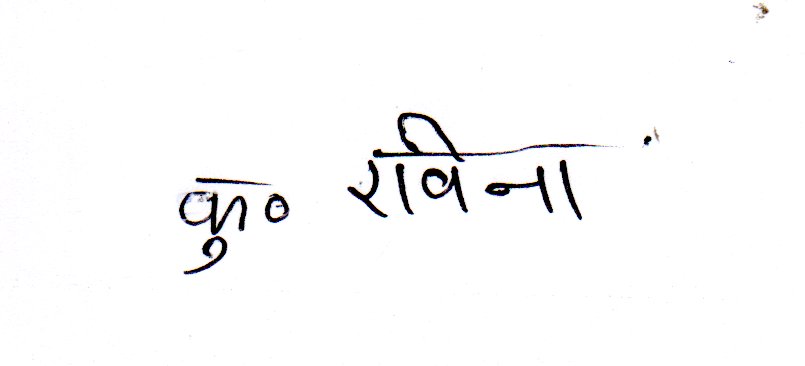 कु० रविना